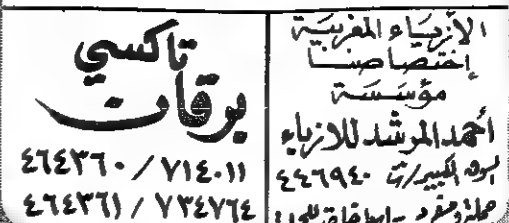 الأزياء المغربية
إختصاصنا
مؤسسة
أحمد المرشد للأزياء
السوق الكبير / ت ٤٤٦٩٤٠
تاكسي
بوقات
٧١٤٠١١ / ٤٦٤٣٦٠
٧٣٤٧٦٤ / ٤٦٤٣٦١